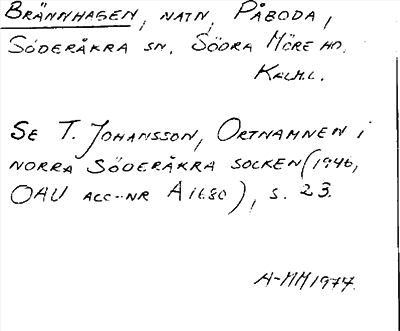 BRÄNNHAGEN, NATN, PÅBODA,
SÖDERÅKRA SN, SÖDRA MÖRE HD.
KALM.L.
SE T. JOHANSSON, ORTNAMNEN I
NORRA SÖDERÅKRA SOCKEN (1946,
OAU ACC-NR A1680), S. 23.
A-MM 1974.